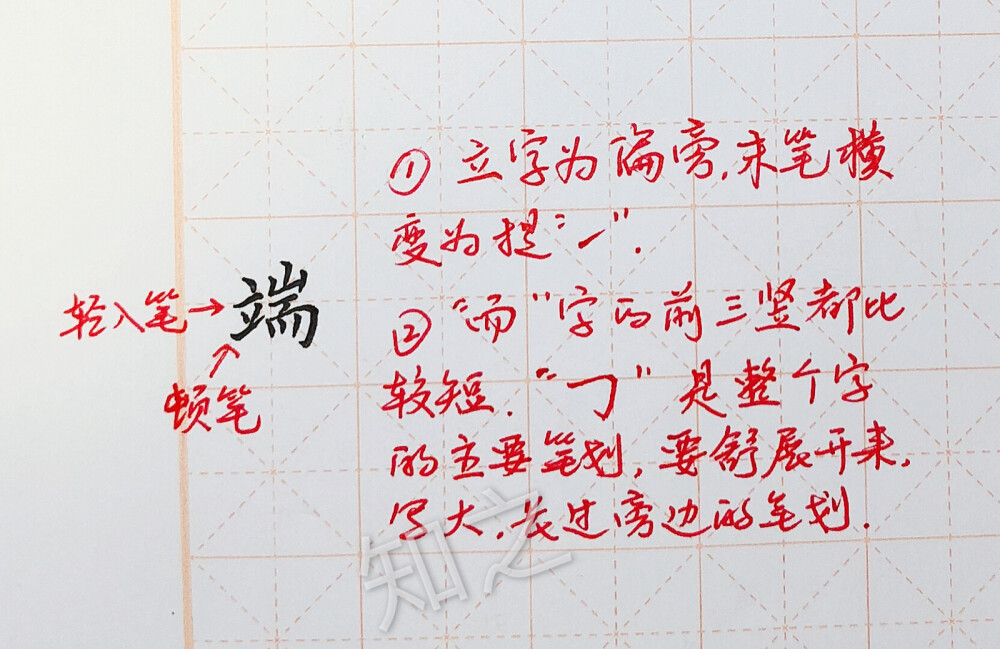 ①立字为偏旁,末笔横
变为提"㇀".
轻入笔→端
顿笔
②"而"字的前三竖都比
较短."𠃌"是整个字
的主要笔划,要舒展开来,
写大,长过旁边的笔划.
知之